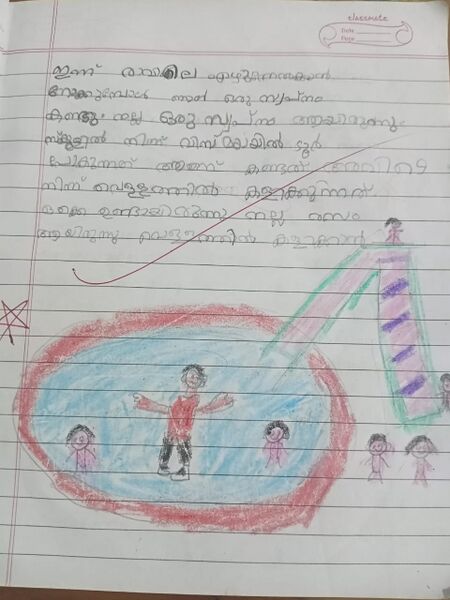 classmate
Date
Page
ഇന്ന് രാവിലെ എഴുന്നേൽക്കാൻ
നോക്കുമ്പോൾ ഞാൻ ഒരു സ്വപ്നം
കണ്ടു. നല്ല ഒരു സ്വപ്നം ആയിരുന്നു.
സ്കൂളിൽ നിന്ന് വിസ്മയയിൽ ടൂർ
പോകുന്നത് ആണ് കണ്ടത് അവിടെ
നിന്ന് വെള്ളത്തിൽ കളിക്കുന്നത്
ഒക്കെ ഉണ്ടായിരുന്നു നല്ല രസം
ആയിരുന്നു വെള്ളത്തിൽ കളിക്കാൻ